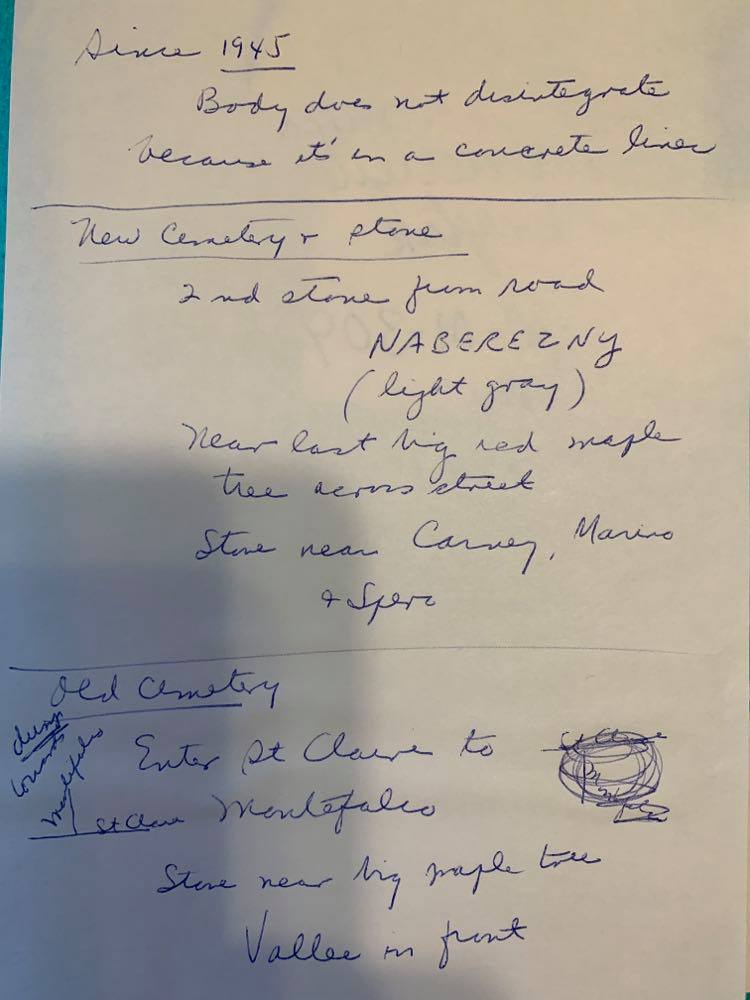 Since 1945
Body does not disintegrate
because it's in a concrete liner
New Cemetery + stone
2nd stone from road
NABEREZNY
(light gray)
Near last big red maple
tree across street
Stone near Carney, Marino
+ Spero
Old Cemetery
towards
Montefalco
Enter St Claire to
St Clare Montefalco
Stone near big maple tree
Vallee in front